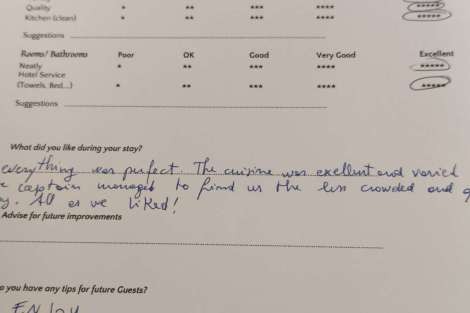 Quality * ** *** **** *****
Kitchen (clean) * ** *** **** *****
Suggestions
Rooms/ Bathrooms Poor OK Good Very Good Excellent
Neatly * ** *** **** *****
Hotel Service
(Towels, Bed....) * ** *** **** *****
Suggestions
What did you like during your stay?
everything was perfect. The cuisine was exellent and varied
captain managed to find us the less crowded and
All as we liked!
Advise for future improvements
o you have any tips for future Guests?
ENJOY